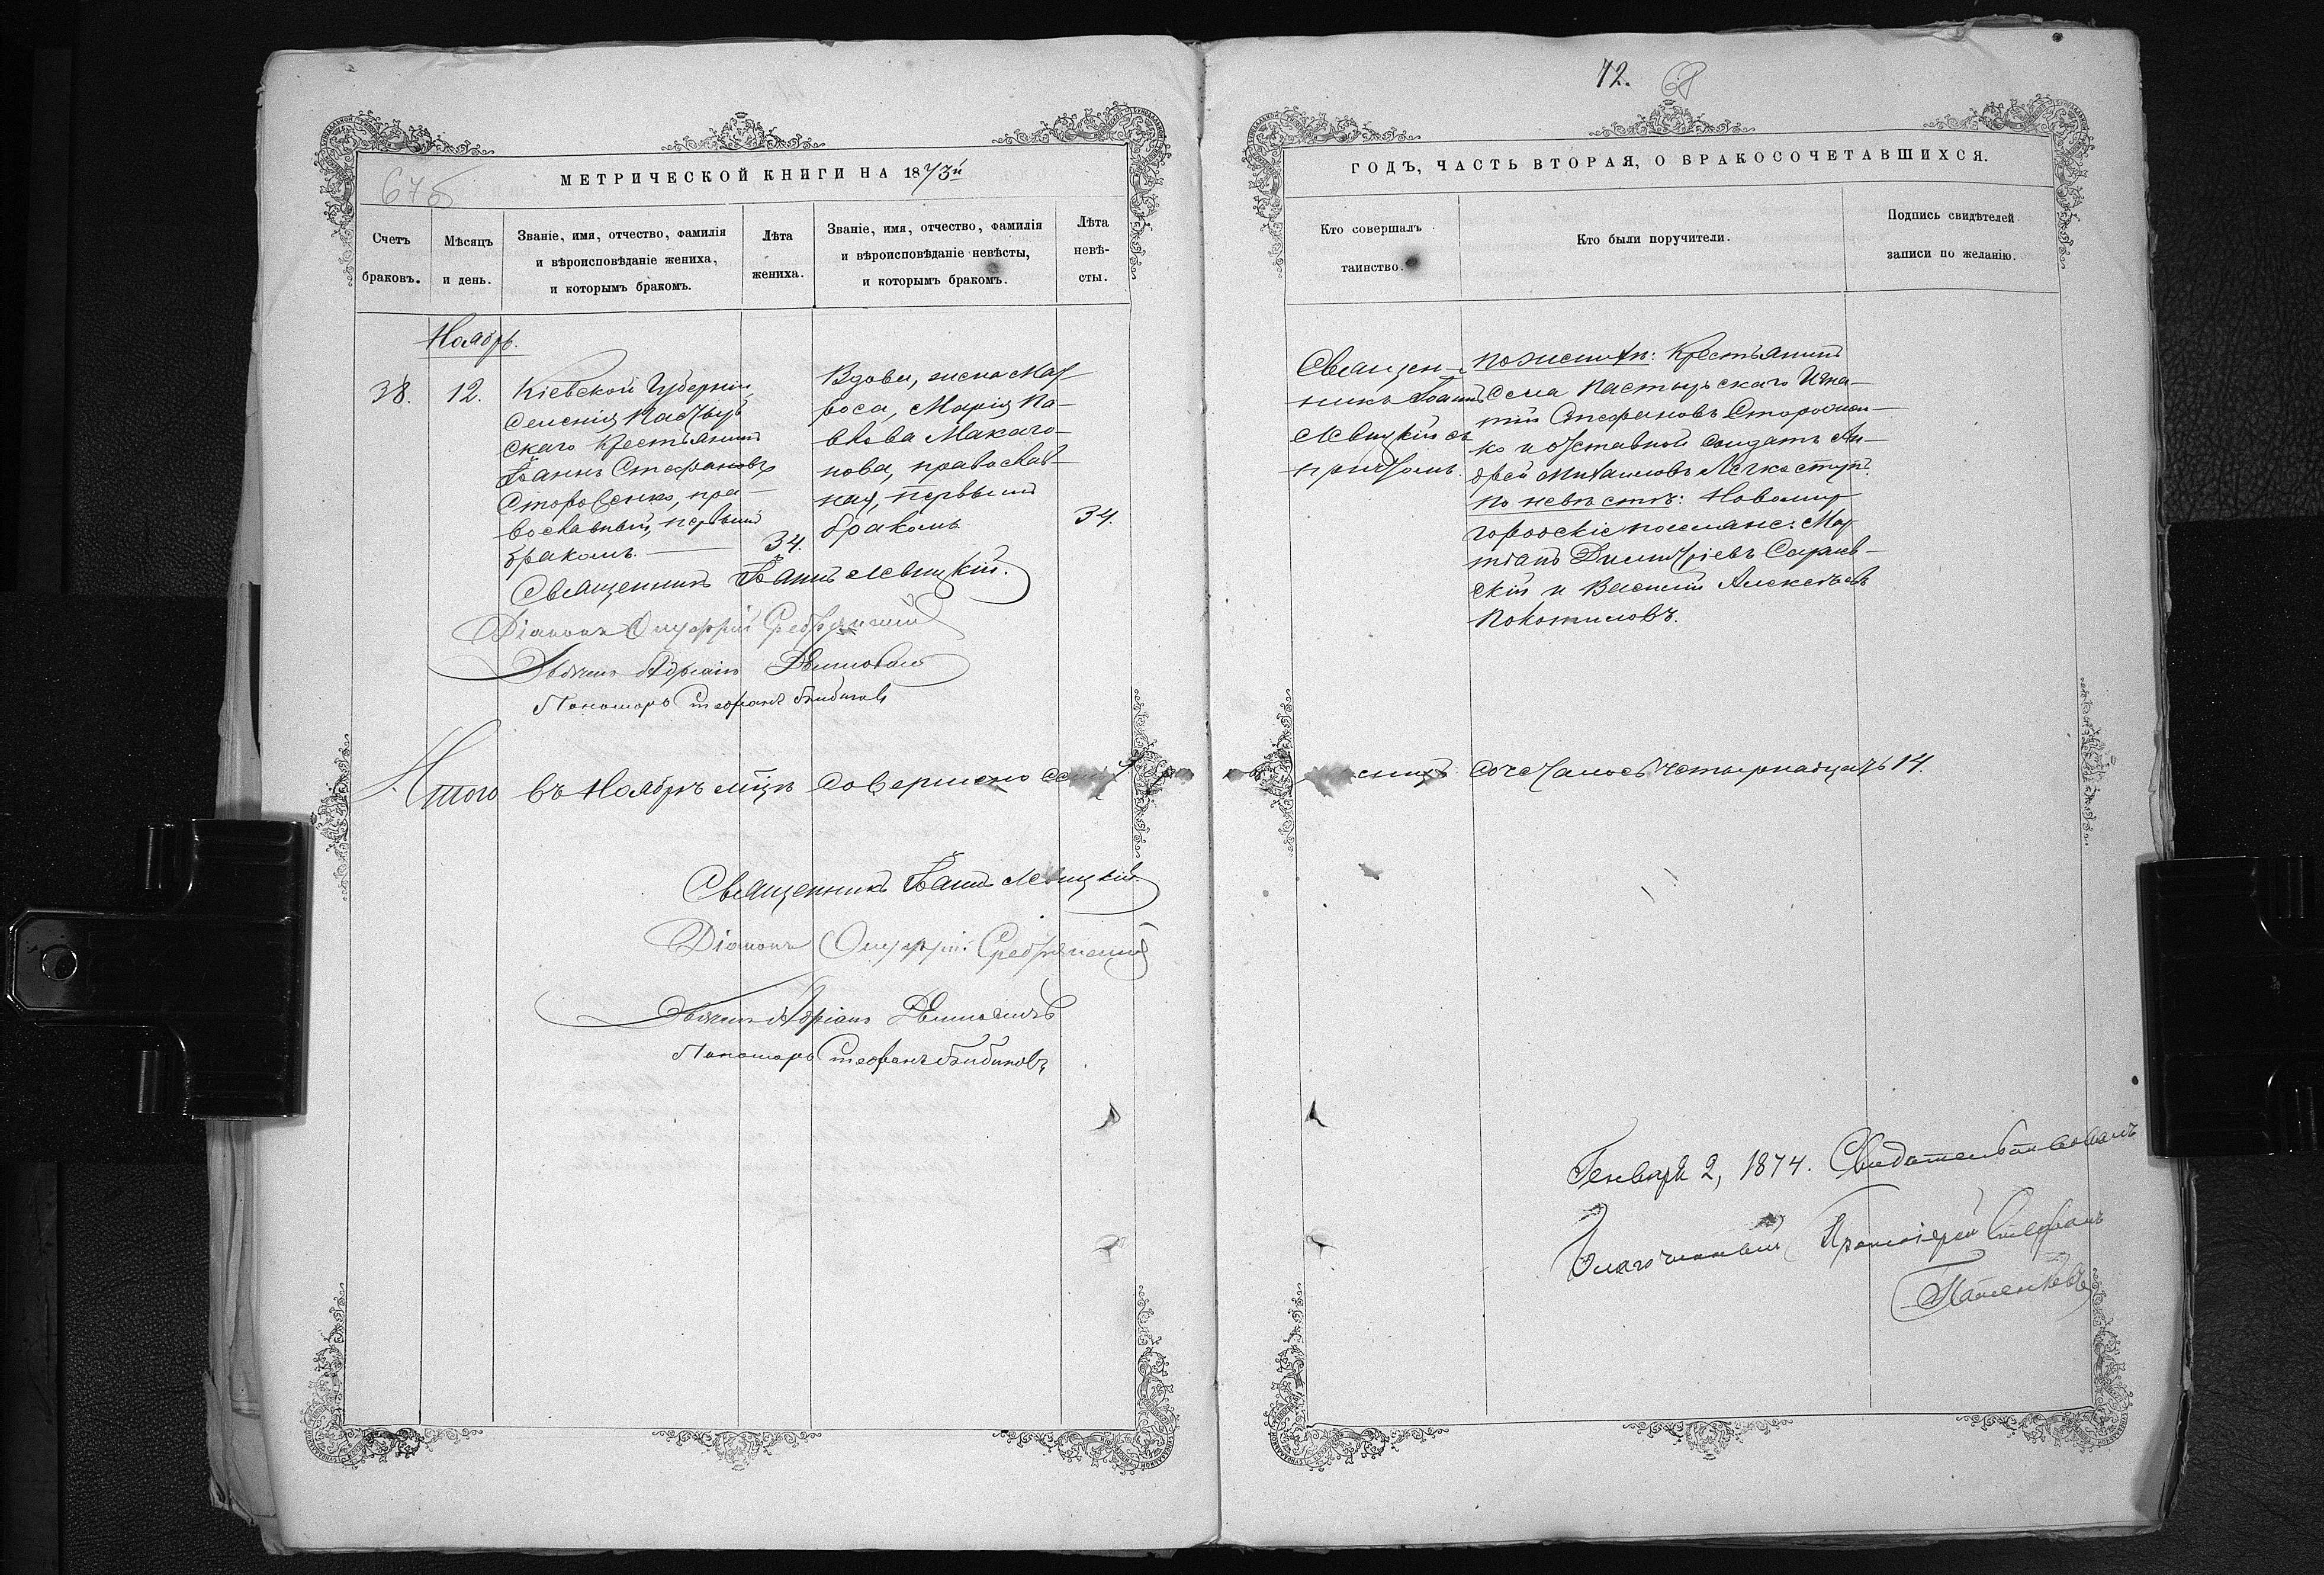 67б
МЕТРИЧЕСКОЙ КНИГИ НА 1873й
Счетъ браковъ.
Мѣсяцъ и день.
Званіе, имя, отчество, фамилія
и вѣроисповѣданіе жениха,
и которымъ бракомъ.
Лѣта жениха.
Званіе, имя, отчество, фамилія
и вѣроисповѣданіе невѣсты,
и которымъ бракомъ.
Лѣта невѣ-
сты.
Ноябрь.
38.
12.
Кіевской Губерніи
Селенія Пастыр
скаго Крестьянинъ
Іоаннъ Стефановъ
Сторо
православный, первымъ
бракомъ.
34.
Вдова, жена Мат
роса, Марія Па-
влова Макаго-
нова, православ-
ная, первымъ
бракомъ
34.
Священникъ Іоаннъ Левицкій.
Діаконъ Онуфрій
Дьячекъ Адріанъ
Пономарь Стефанъ Бибиковъ
Итого въ Ноябрѣ мцѣ совершено
Священникъ Іоаннъ Левицкій.
Діаконъ Онуфрій
Дьячекъ Адріанъ
Пономарь Стефанъ Бибиковъ
72.
68
ГОДЪ, ЧАСТЬ ВТОРАЯ, О БРАКОСОЧЕТАВШИХСЯ.
Кто совершалъ
таинство.
Кто были поручители.
Подпись свидѣтелей
записи по желанію.
Священ-
никъ Іоаннъ
Левицкій съ
причтомъ.
по женихѣ: Крестьянинъ
Села Пастырскаго Игна-
тій Стефановъ
ко и отставной солдатъ Ан-
дрей Михаиловъ
по невѣстѣ: Новомир
городскіе поселяне: Мар
тіанъ Димитріевъ
скій и Василій Алексѣевъ
Покотиловъ.
сочеталось четырнадцать 14.
Генваря 2, 1874. Свидѣтельствовалъ
Благочинный Протоіерей Стефанъ